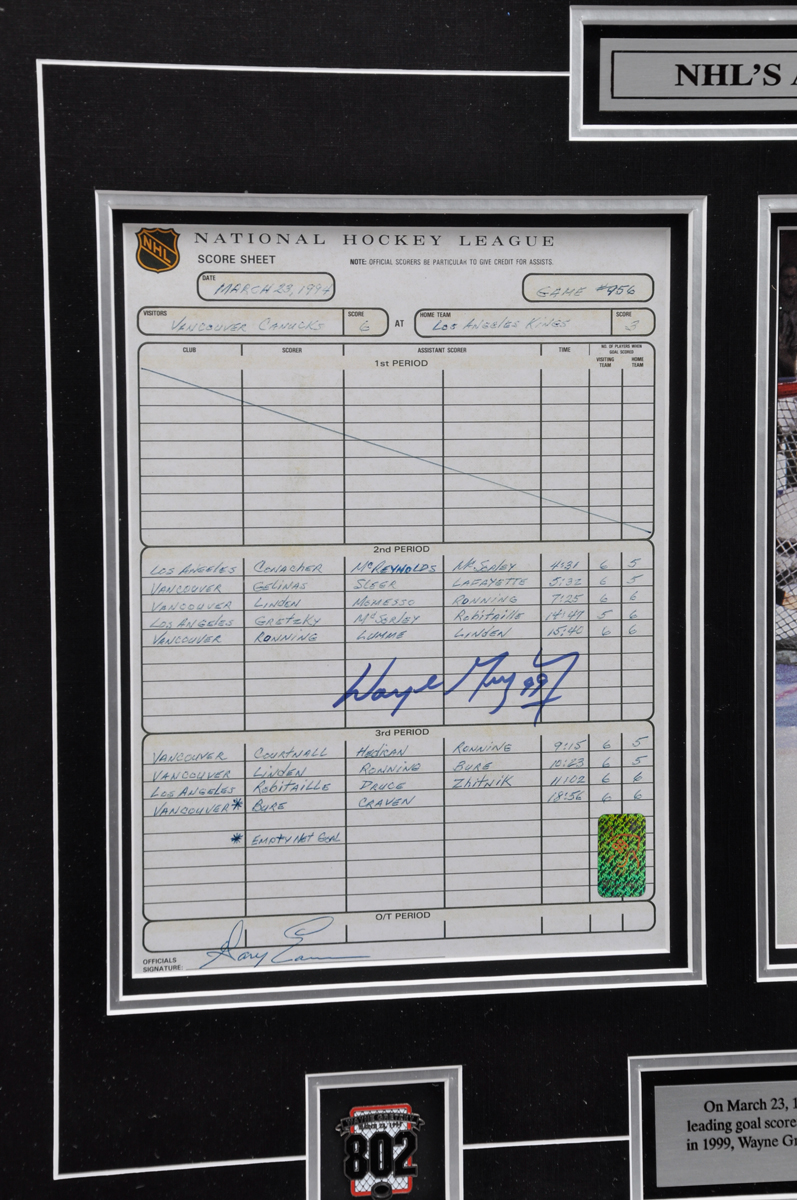 NHL'S
NHL
NATIONAL HOCKEY LEAGUE
SCORE SHEET
NOTE: OFFICIAL SCORERS BE PARTICULAR TO GIVE CREDIT FOR ASSISTS.
DATE
MARCH 23, 1994
GAME #956
VISITORS
VANCOUVER CANUCKS
SCORE
6
AT
HOME TEAM
LOS ANGELES KINGS
SCORE
3
CLUB SCORER ASSISTANT SCORER TIME NO. OF PLAYERS WHEN GOAL SCORED
VISITING TEAM HOME TEAM
1st PERIOD
2nd PERIOD
LOS ANGELES CONACHER McREYNOLDS McSORLEY 4:31 6 5
VANCOUVER GELINAS SLEGR LAFAYETTE 5:32 6 5
VANCOUVER LINDEN MOMESSO RONNING 7:25 6 6
LOS ANGELES GRETZKY McSORLEY Robitaille 14:47 5 6
VANCOUVER RONNING LUMME LINDEN 15:40 6 6
Wayne Gretzky 99
3rd PERIOD
VANCOUVER COURTNALL HEDICAN RONNING 9:15 6 5
VANCOUVER LINDEN RONNING BURE 10:23 6 5
LOS ANGELES ROBITAILLE DRUCE Zhitnik 11:02 6 6
VANCOUVER* BURE CRAVEN 18:56 6 6
* EMPTY NET GOAL
O/T PERIOD
OFFICIALS
SIGNATURE:
MARCH 23, 1994
802
On March 23, 1
leading goal score
in 1999, Wayne Gr